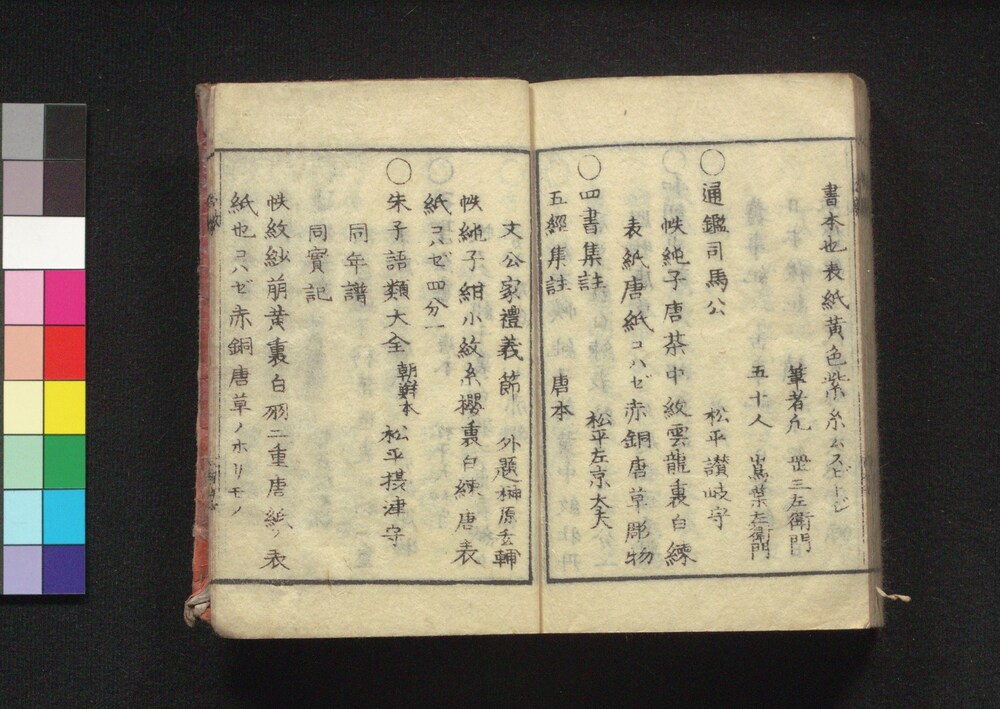 書本也表紙黄色紫糸ムスビトジ
筆者凡 三左衛門
五十人 嶌葉左衛門
○通鑑司馬公 松平讃岐守
帙純子唐茶中紋雲龍裏白練
表紙唐紙コハゼ赤銅唐草彫物
○四書集註 松平左京太夫
五經集註 唐本
文公家禮義節 外題榊原玄輔
帙純子紺小紋糸櫻裏白練唐表
紙コハゼ四分一
○朱子語類大全 朝鮮本 松平摂津守
同年譜
同實記
帙紋紗萠黄裏白羽二重唐紙ノ表
紙也コハゼ赤銅唐草ノホリモノ